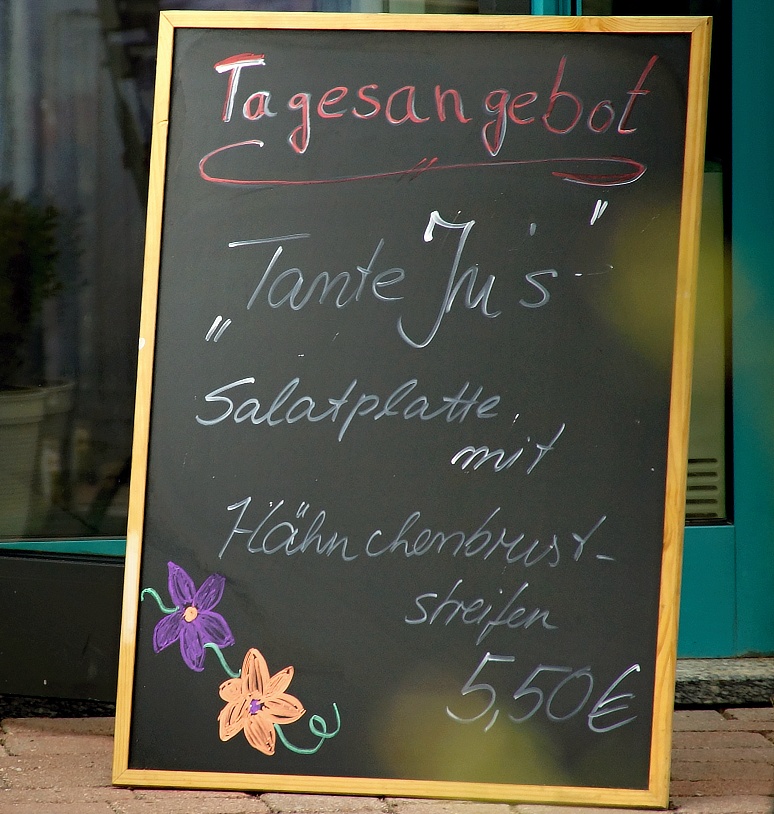 Tagesangebot
„Tante Ju's"
Salatplatte
mit
Hähnchenbrust-
streifen
5,50€